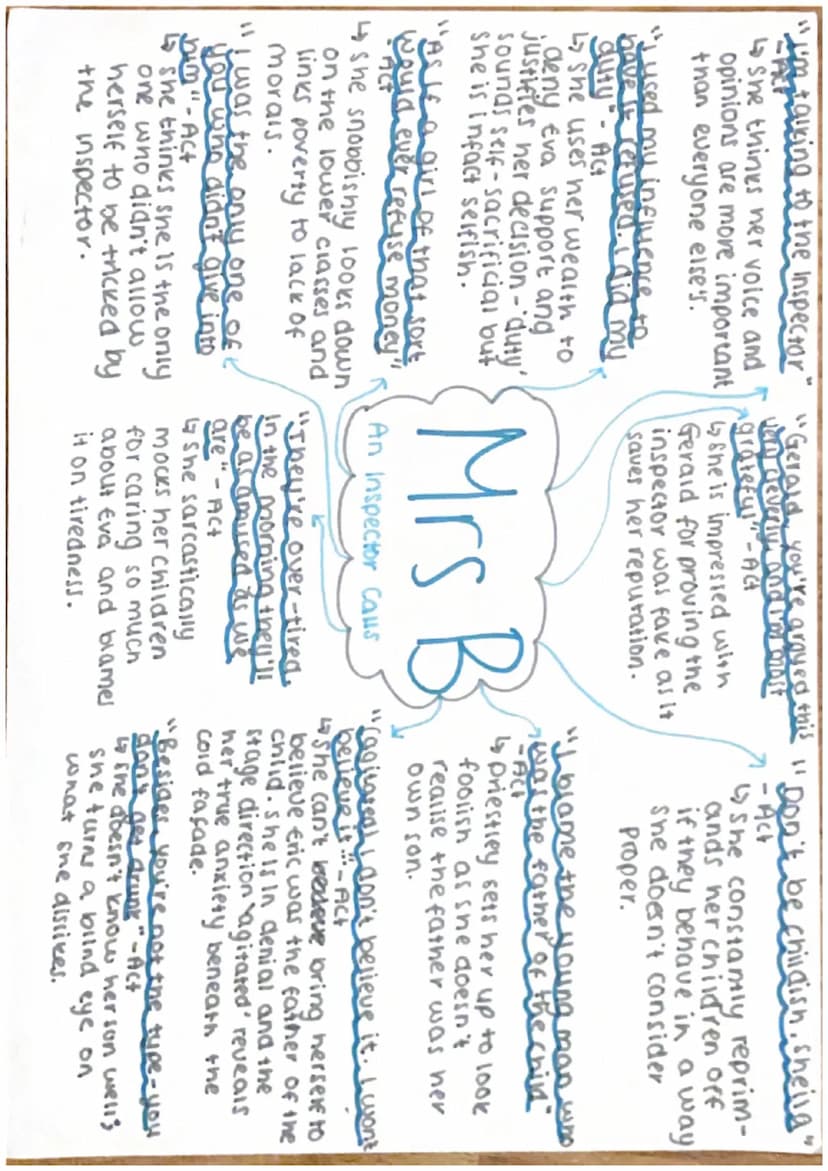 "I'm talking to the inspector"
- Act
↳ she thinks her voice and
opinions are more important
than everyone else's.
"I used my influence to
have it refused. I did my
duty" - Act
↳ she uses her wealth to
deny Eva support and
justifies her decision - 'duty'
sounds self-sacrificial but
she is infact selfish.
"As if a girl of that sort
would ever refuse money"
- Act
↳ she snobbishly looks down
on the lower classes and
links poverty to lack of
morals.
"I was the only one of
you who didn't give into
him" - Act
↳ she thinks she is the only
one who didn't allow
herself to be tricked by
the inspector.
"Gerald, you're argued this
very cleverly, and I'm most
grateful" - Act
↳ she is impressed with
Gerald for proving the
inspector was fake as it
saves her reputation.
Mrs B
An Inspector Calls
"They're over-tired.
In the morning they'll
be as amused as we
are" - Act
↳ she sarcastically
mocks her children
for caring so much
about Eva and blames
it on tiredness.
"Don't be childish, Sheila"
- Act
↳ she constantly reprim-
ands her children off
if they behave in a way
she doesn't consider
proper.
"I blame the young man who
was the father of the child"
- Act
↳ priestley sets her up to look
foolish as she doesn't
realise the father was her
own son.
"(agitated) I don't believe it. I won't
believe it..." - Act
↳ she can't bring herself to
believe Eric was the father of the
child. she is in denial and the
stage direction 'agitated' reveals
her true anxiety beneath the
cold façade.
"Besides, you're not the type - you
don't get drunk" - Act
↳ she doesn't know her son well;
she turns a blind eye on
what she dislikes.